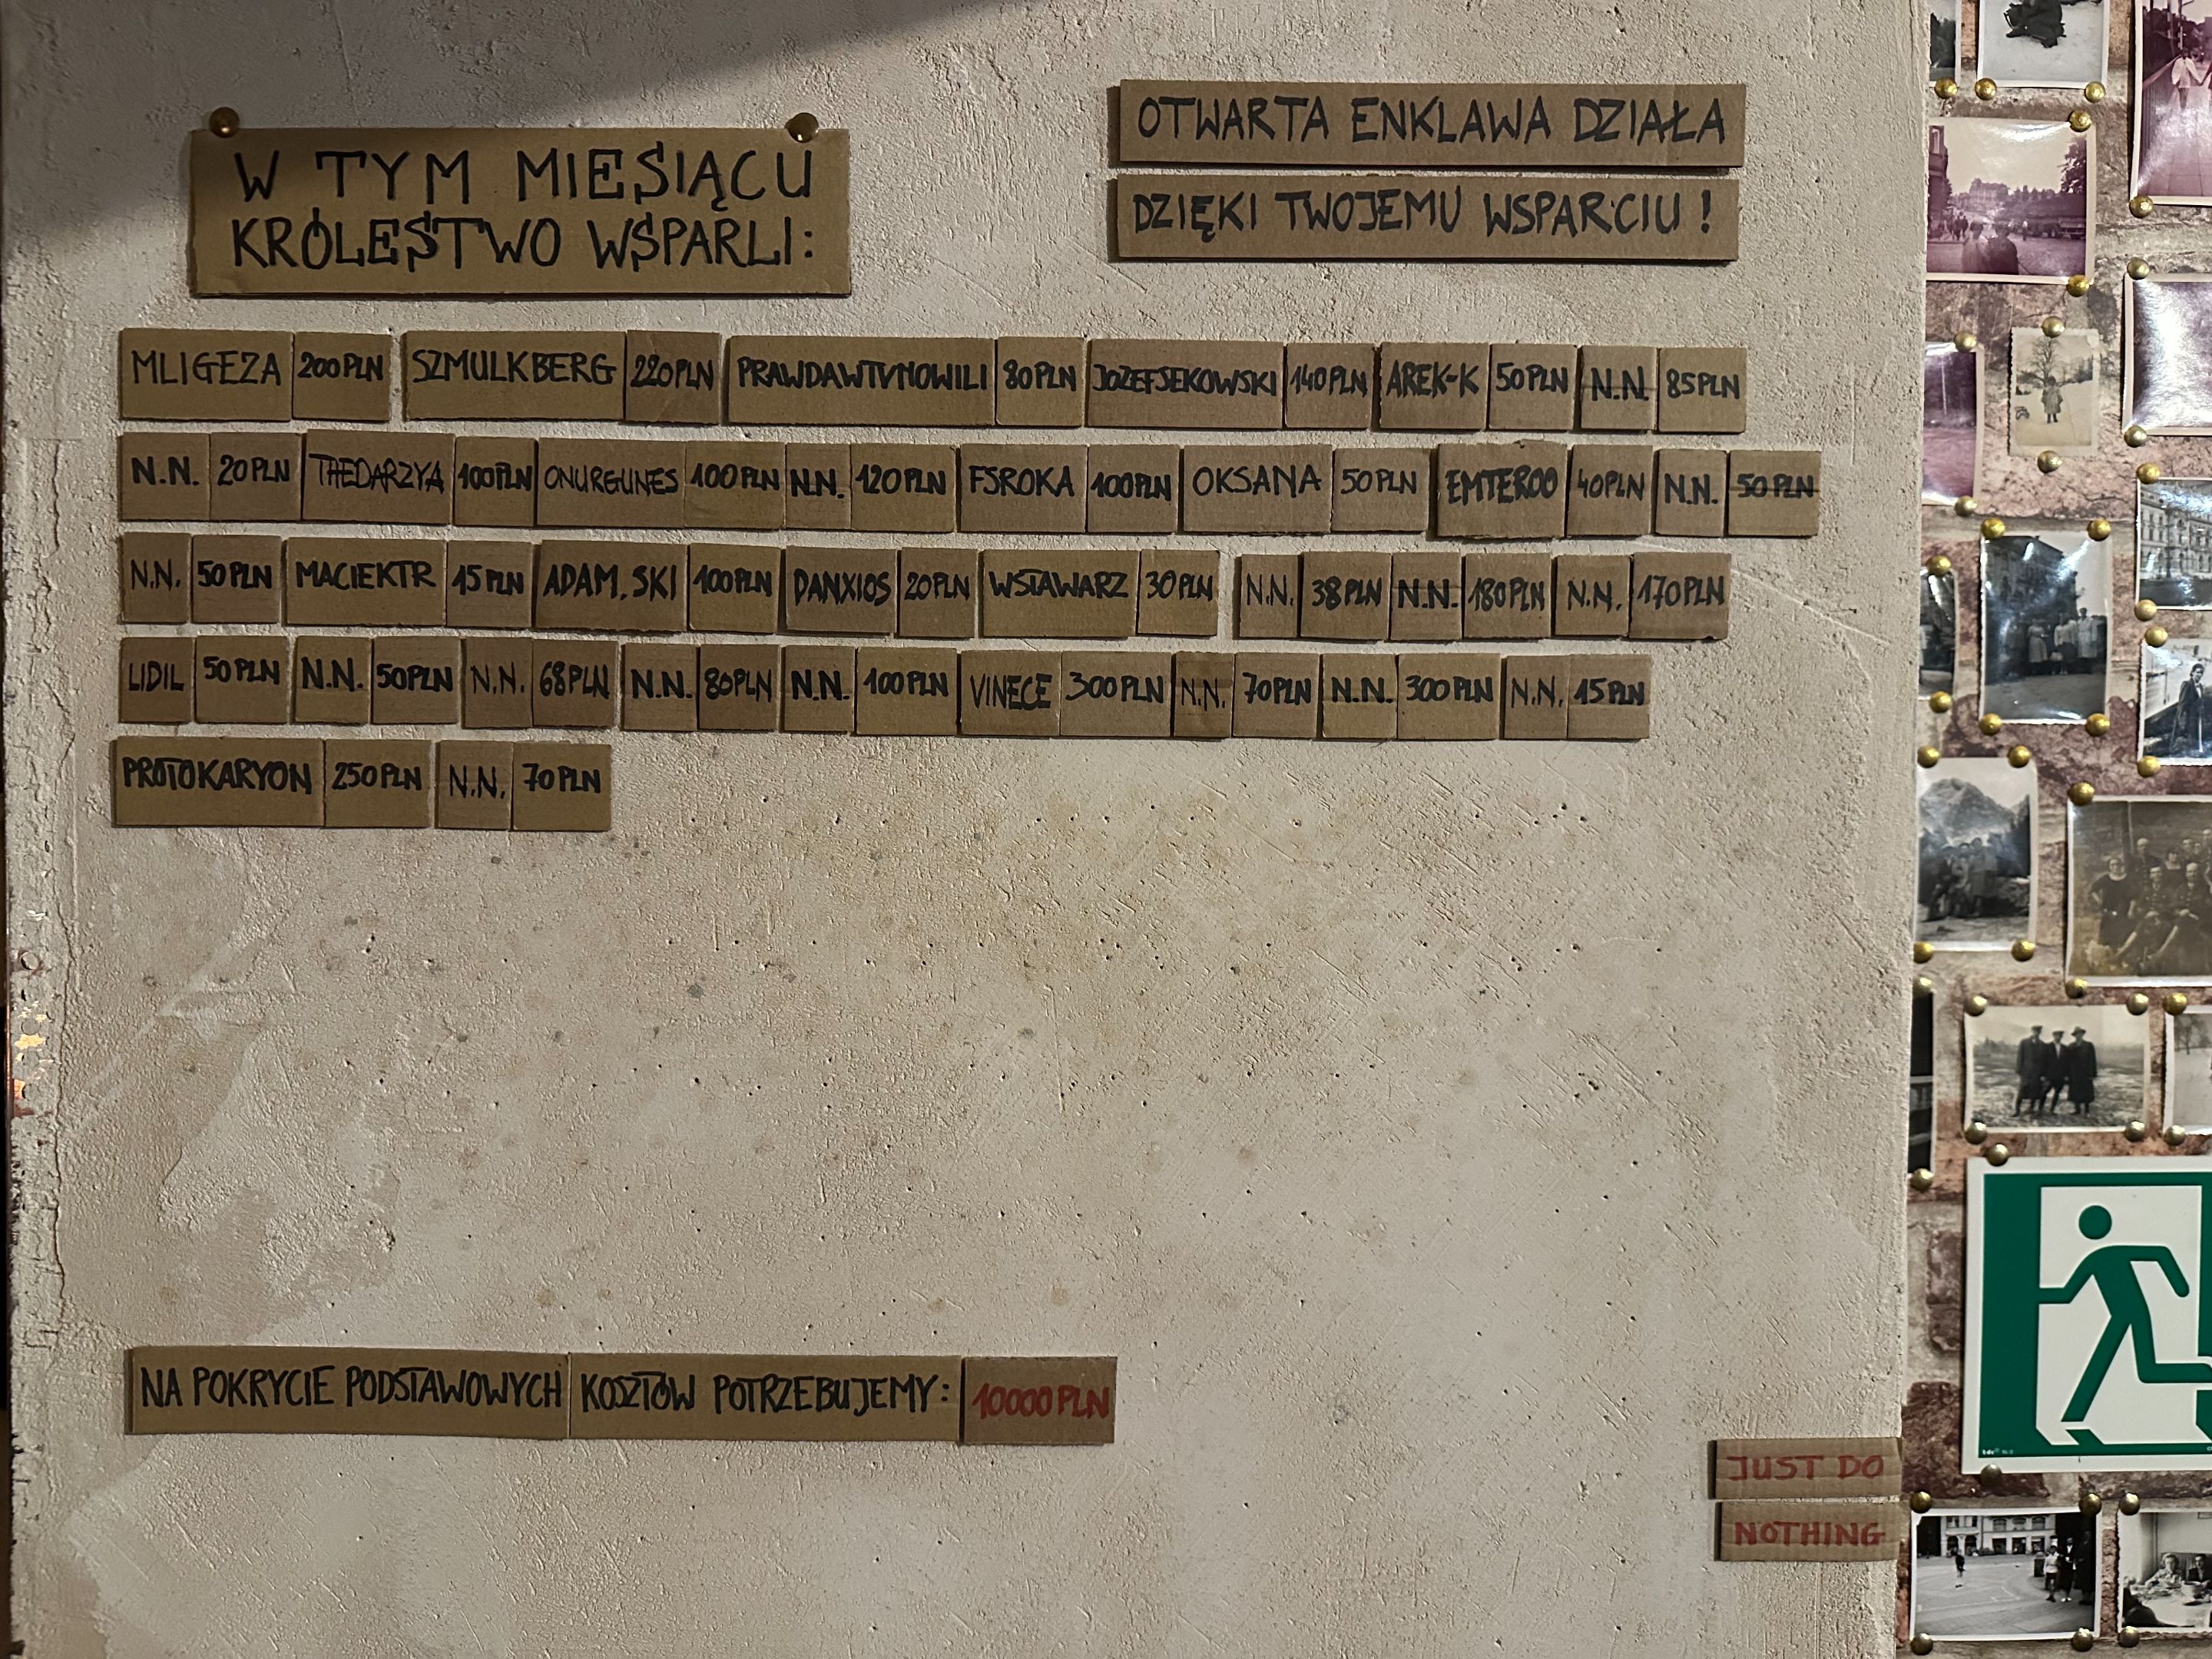 W TYM MIESIĄCU
KRÓLESTWO WSPARLI:
OTWARTA ENKLAWA DZIAŁA
DZIĘKI TWOJEMU WSPARCIU !
MLIGEZA 200PLN SZMULKBERG 220PLN PRAWDAWTVNOWILI 80PLN JOZEFSEKOWSKI 140PLN AREK-K 50PLN N.N. 85PLN
N.N. 20PLN THEDARZYA 100PLN ONURGUNES 100PLN N.N. 120PLN FSROKA 100PLN OKSANA 50PLN EMTEROO 40PLN N.N. 50PLN
N.N. 50PLN MACIEKTR 15PLN ADAM.SKI 100PLN DANXIOS 20PLN WSTAWARZ 30PLN N.N. 38PLN N.N. 180PLN N.N. 170PLN
LIDIL 50PLN N.N. 50PLN N.N. 68PLN N.N. 80PLN N.N. 100PLN VINECE 300PLN N.N. 70PLN N.N. 300PLN N.N. 15PLN
PROTOKARYON 250PLN N.N. 70PLN
NA POKRYCIE PODSTAWOWYCH KOSZTÓW POTRZEBUJEMY: 10000PLN
JUST DO
NOTHING